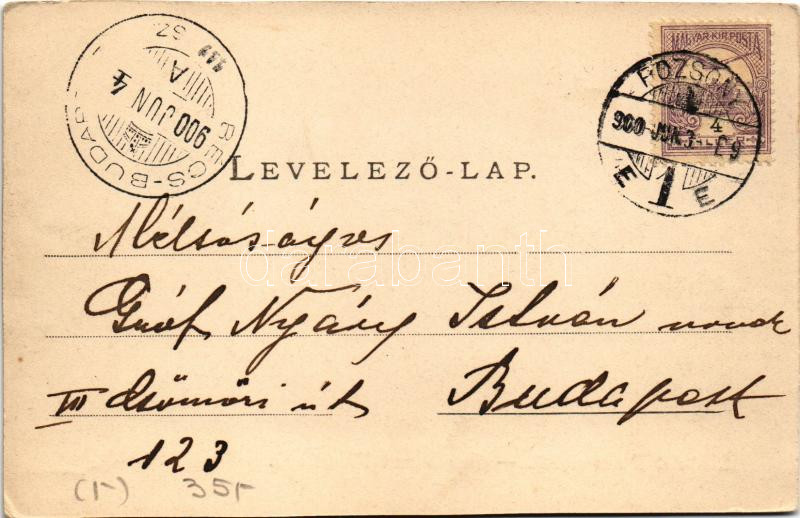 BÉCS-BUDAP
SZ.
A
900 JUN 4
MAGYAR KIR. POSTA
POZSONY
900 JUN 3
E T E
LEVELEZŐ-LAP.
Méltóságos
Gróf Nyáry István urnak
III Csömöri út Budapest
123
(1-) 351-
darabanth